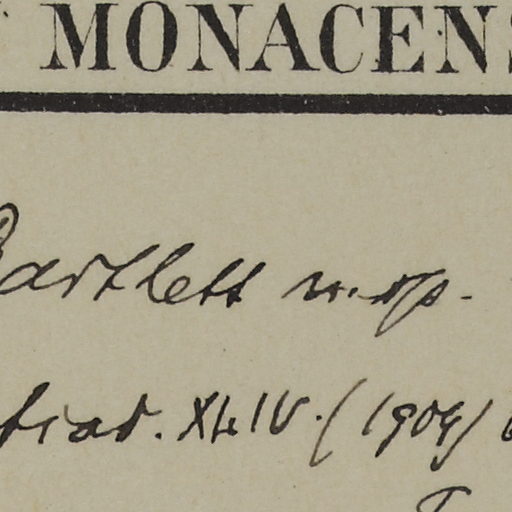 MONACENS
Bartlett n. sp.
Acad. XLIV. (1909) 6